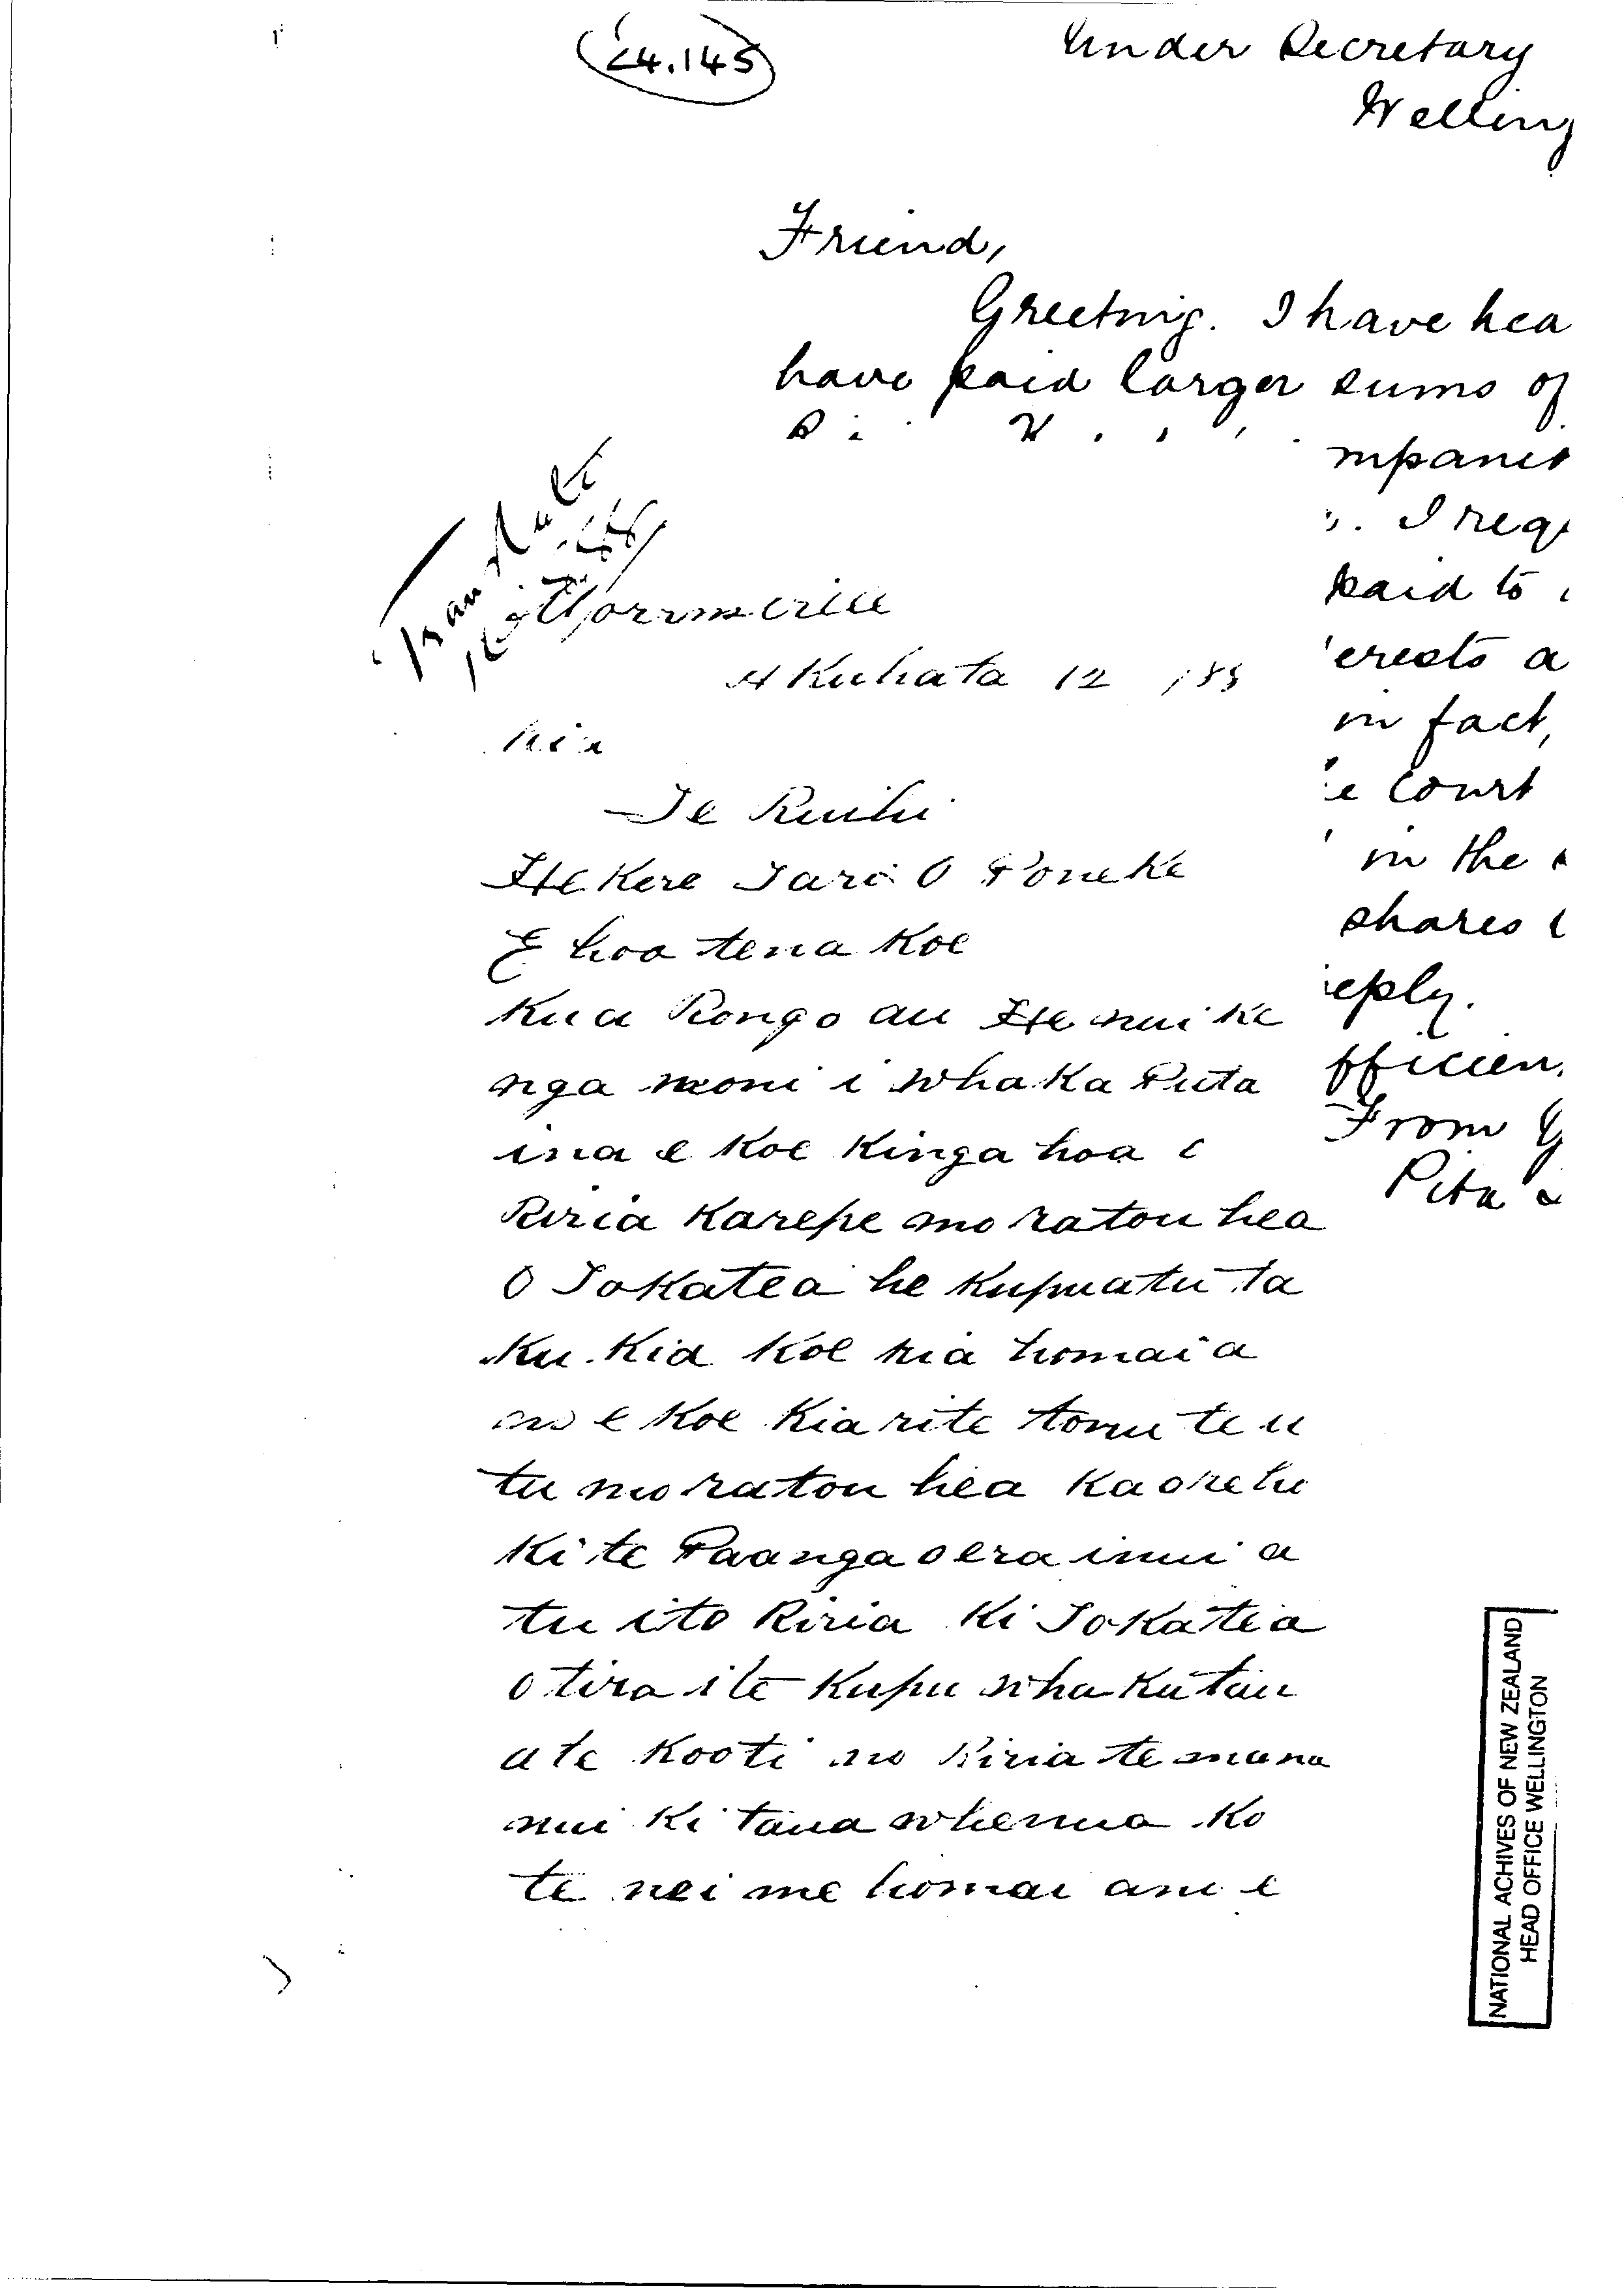 24.145
Under Secretary
Welling
Friend,
Greeting. I have hea
have paid larger sums of
mpanies
. I requ
paid to
erests a
in fact,
e Court
in the
shares
eply.
fficien
From Y
Pita
Translate
Akuhata 12 188
Kia
Te Ruihi
Hekere Tari O Poneke
E hoa tena Koe
Kua Rongo au He nui ke
nga moni i whaka Puta
ina e Koe Kinga hoa i
Riria Karepe mo ratou hea
O Tokatea he Kupu atu ta
Ku Kia Koe kia homai a
no e Koe Kia rite tonu te u
tu mo ratou hea Kaore hi
Ki te Paanga o era i nui a
tu i to Riria Ki Tokatea
otira i te Kupu whakatau
a te Kooti no Riria te mana
nui Ki taua whenua Ko
te nei me homai ano e
NATIONAL ACHIVES OF NEW ZEALAND
HEAD OFFICE WELLINGTON